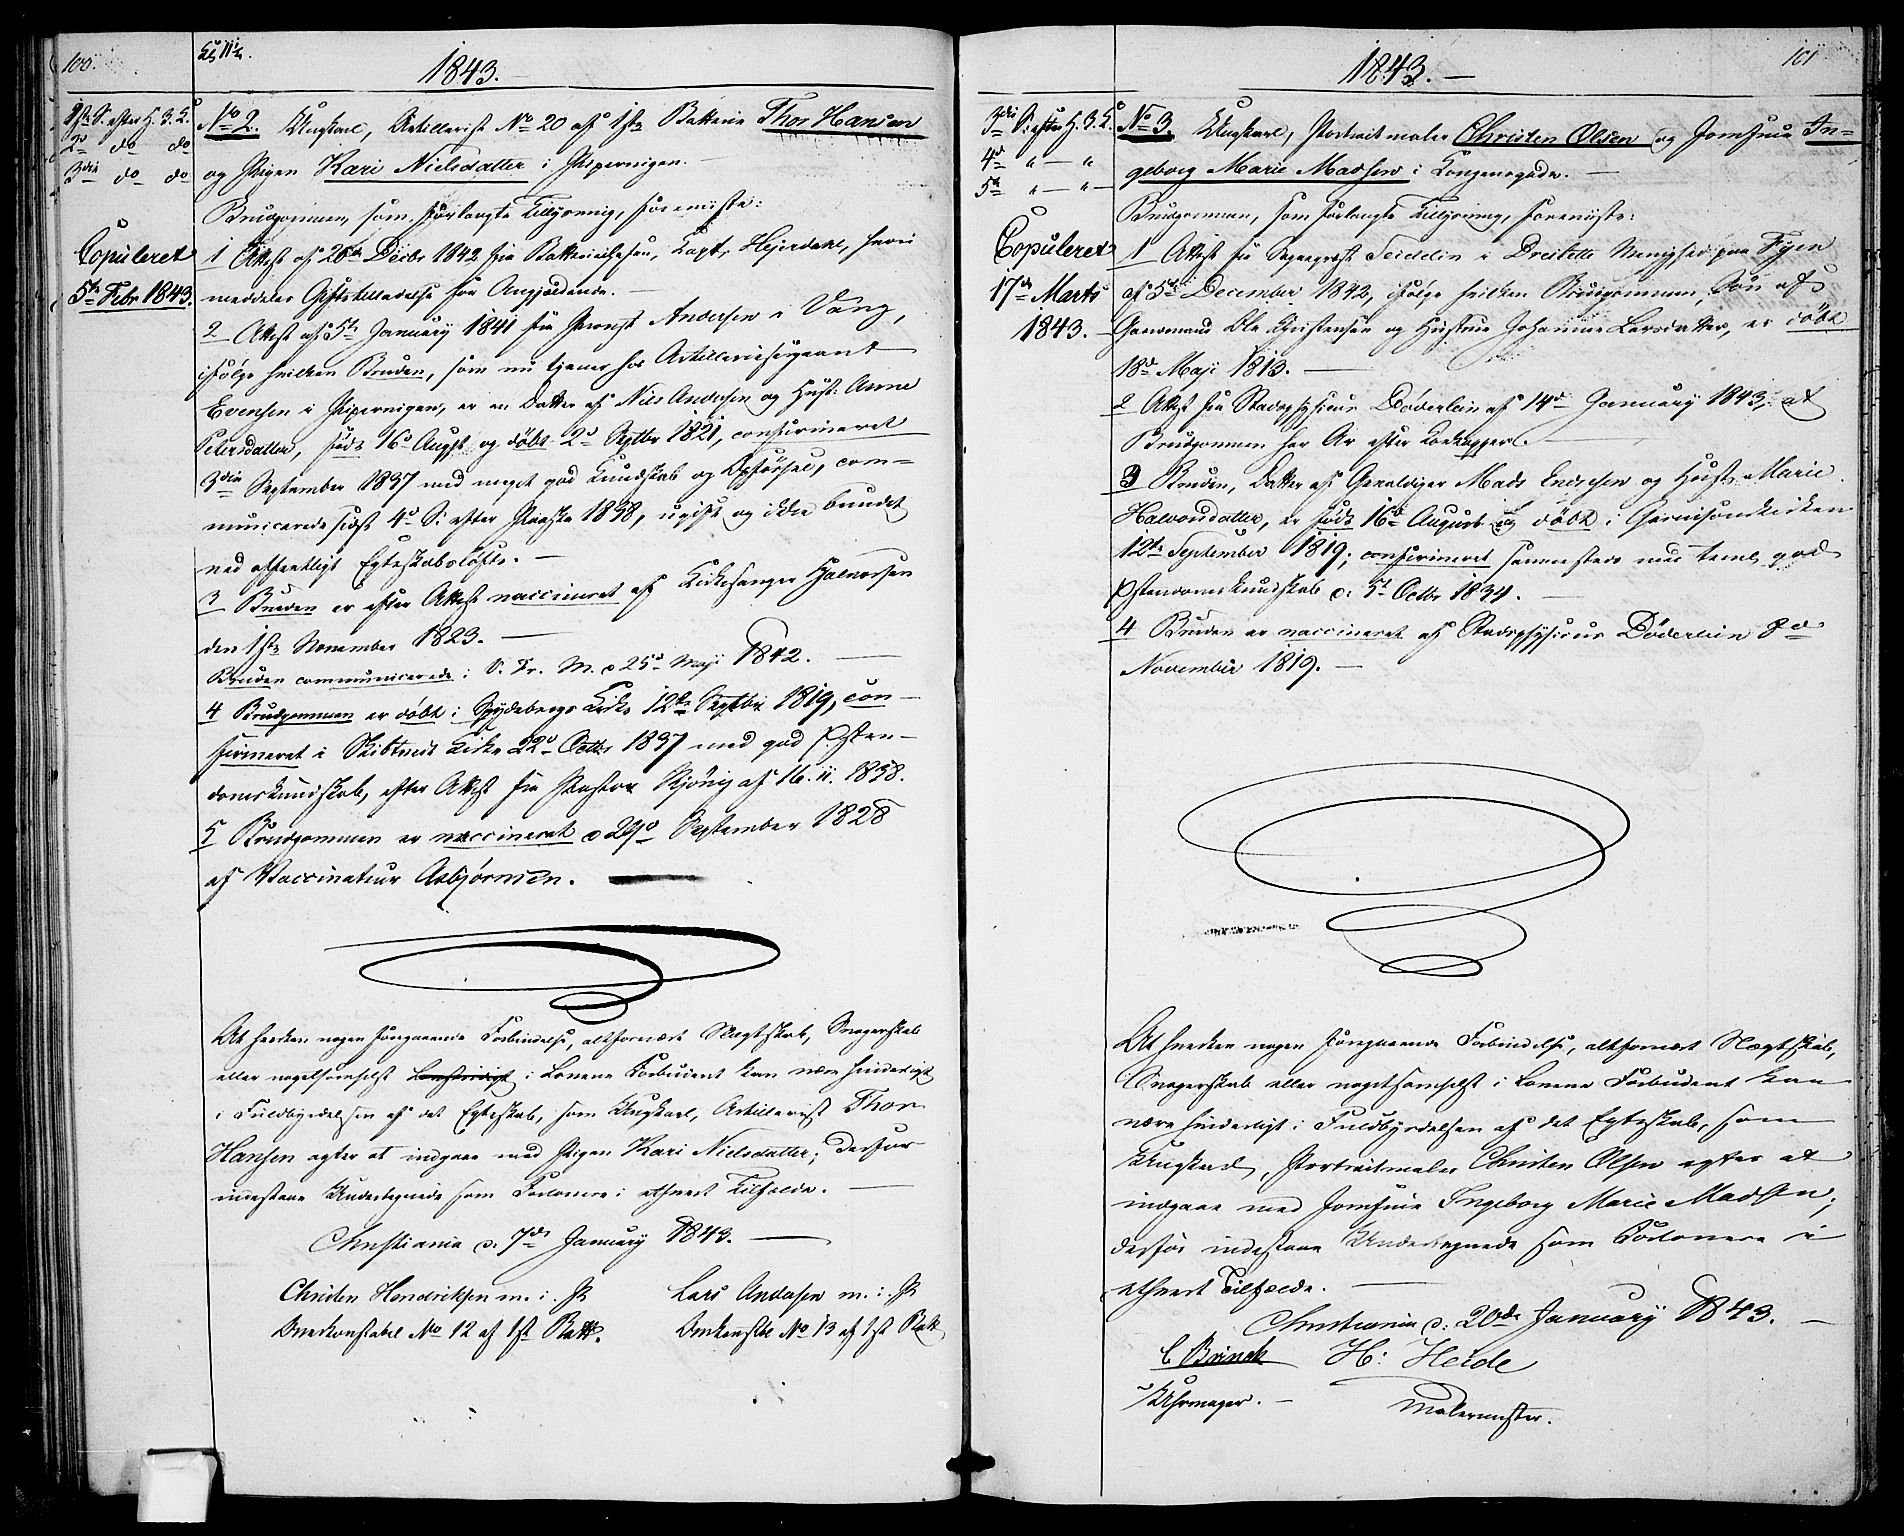 100.
1843.
1ste S. efter H. 3 K.
2d do do
3die do do
Copuleret
5te Febr 1843.
No 2. Ungkarl, Artillerist No 20 af 1ste Batterie Thor Hansen
og Pigen Kari Nielsdatter i Pipervigen.
Brudgommen, som forlangte Tillysning, foreviste:
1 Attest af 26de Decbr 1842 fra Batteriechefen, Capt. Hejerdahl, hvori
meddeles Giftetilladelse for Angjældende.
2 Attest af 5te January 1841 fra Provst Andersen i Vang,
ifølge hvilken Bruden, som nu tjener hos Artilleriesergeant
Evensen i Pipervigen, er en Datter af Niels Andersen og Hust: Anne
Petersdatter, født 16d Augst og døbt 2d Septbr 1821, confirmeret
3die September 1837 med meget god Kundskab og Opførsel, com-
municerede sidst 4d S. efter Paaske 1838, ugift og ikke bundet
ved offentligt Egteskabsløfte.
3 Bruden er efter Attest vaccineret af Kirkesanger Halvorsen
den 1ste November 1823.
Bruden communicerede i V. Fr. M. d 25d Maji 1842.
4 Brudgommen er døbt i Spydebergs Kirke 12te Septbr 1819, con-
firmeret i Skibtvedt Kirke 22d Octbr 1837 med god Christen-
domskundskab, efter Attest fra Pastor Kjønig af 16.11.1838.
5 Brudgommen er vaccineret d 29d September 1828
af Vaccinateur Asbjørnsen.
At hverken nogen foregaaende Forbindelse, altfornært Slægtskab, Svogerskab
eller nogetsomhelst i Lovene Forbudent kan være hinderligt
i Fuldbyrdelsen af det Egteskab, som Ungkarl, Artillerist Thor
Hansen agter at indgaae med Pigen Kari Nielsdatter; derfor
indestaae Undertegnede som Forlovere i ethvert Tilfælde.
Christiania d. 7de January 1843.
Christen Hendriksen m. i. P. Lars Andersen m. i. P
Overkonstabel No 12 af 1st Batt. Overkonstbl No 13 af 1st Batt
101
1843.
3die S. efter H. 3 K.
4d " — "
5te " — " —
Copuleret
17de Marts
1843.
No 3. Ungkarl, Portraitmaler Christen Olsen og Jomfrue In-
geborg Marie Madsen i Kongensgade.
Brudgommen, som forlangte Tillysning, foreviste:
1 Attest fra Sognepræst Seidelin i Dreslette Menighed paa Fyen
af 5te December 1842, ifølge hvilken Brudgommen, Søn af
Gaardmand Ole Christensen og Hustrue Johanne Larsdatter, er døbt
18de Maji 1813.
2 Attest fra Stadsphysicus Døderlein af 14de January 1843, at
Brudgommen har Ar efter Koekopper.
3 Bruden, Datter af Gevaldiger Mads Endresen og Hust. Marie
Halvorsdatter, er født 16de August og døbt i Garnisonskirken
12te September 1819; confirmeret sammesteds med temlig god
Christendomskundskab d. 5te Octbr 1834.
4 Bruden er vaccineret af Stadsphysicus Døderlein 8de
November 1819.
At hverken nogen foregaaende Forbindelse, altfornært Slægtskab,
Svogerskab eller nogetsomhelst i Lovene Forbudent kan
være hinderligt i Fuldbyrdelsen af det Egteskab, som
Ungkarl, Portraitmaler Christen Olsen agter at
indgaae med Jomfrue Ingeborg Marie Madsen;
derfor indestaae Undertegnede som Forlovere i
ethvert Tilfælde.
Christiania d. 20de January 1843.
C Brinch H: Heide
Uhrmager. Malermester.